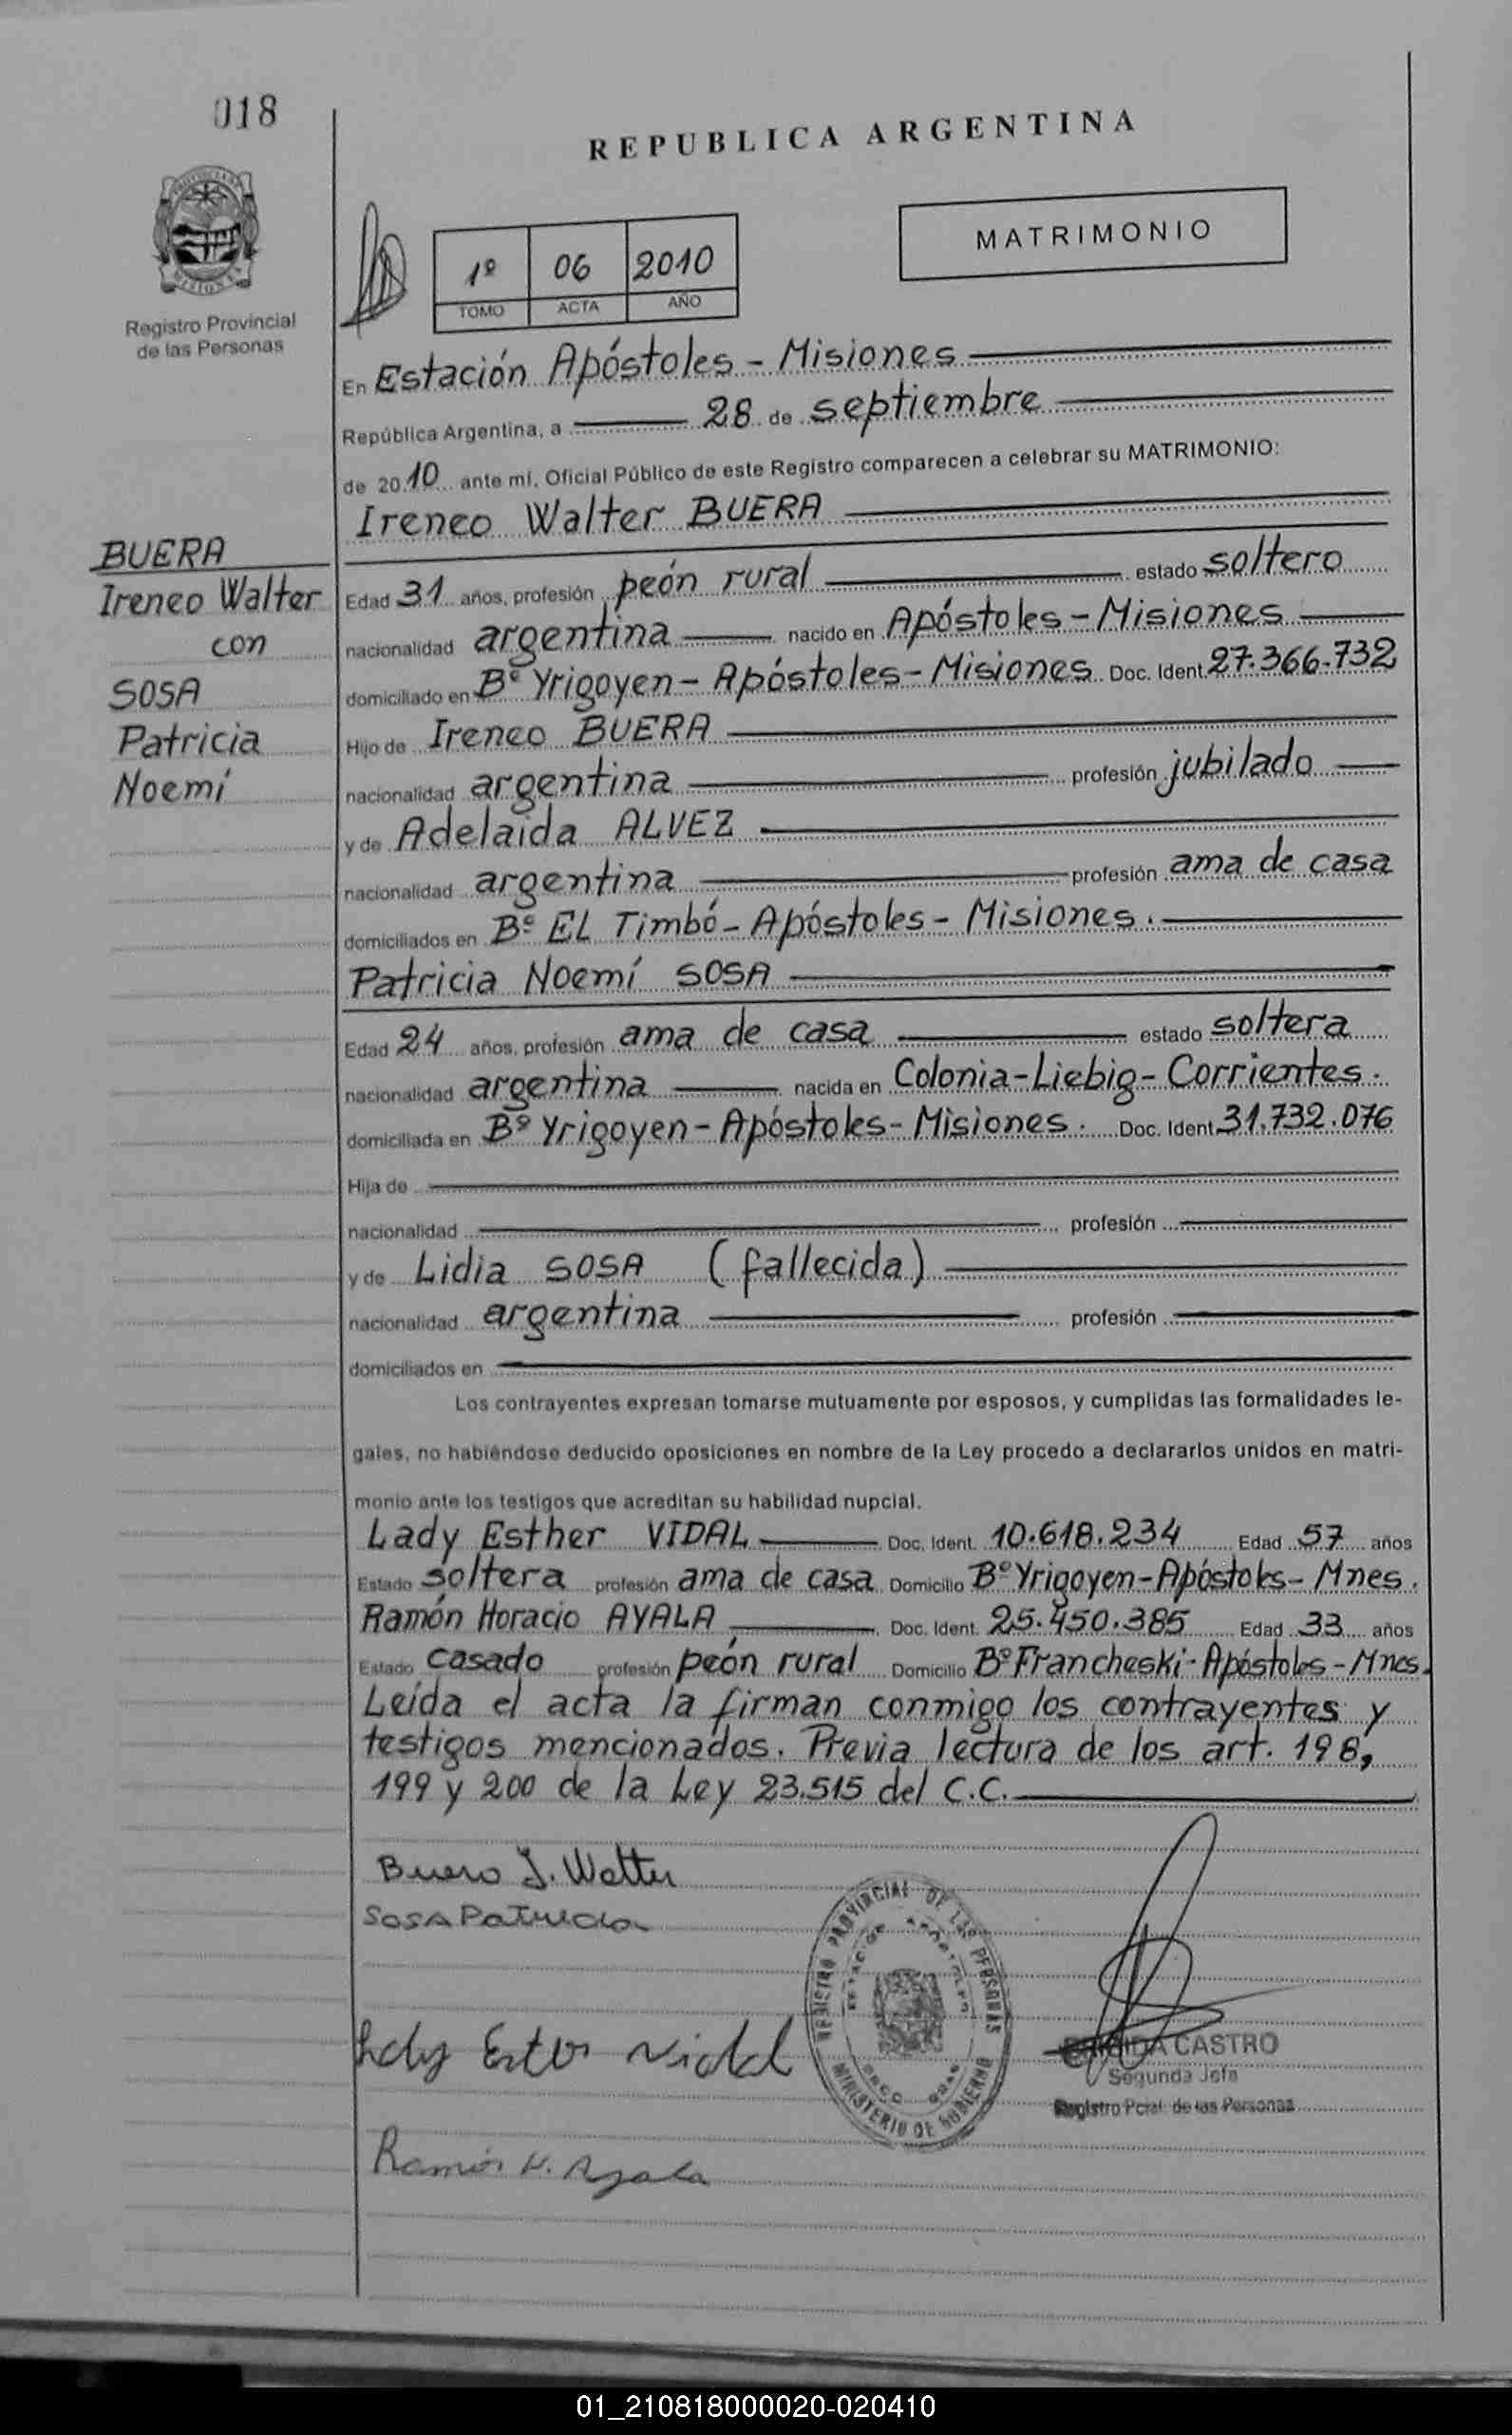 018
REPUBLICA ARGENTINA
MATRIMONIO
1º 06 2010
TOMO ACTA AÑO
Registro Provincial
de las Personas
En Estación Apóstoles - Misiones
República Argentina, a 28 de septiembre
de 2010 ante mí, Oficial Público de este Registro comparecen a celebrar su MATRIMONIO:
Ireneo Walter BUERA
BUERA
Ireneo Walter
con
SOSA
Patricia
Noemí
Edad 31 años, profesión peón rural estado soltero
nacionalidad argentina nacido en Apóstoles - Misiones
domiciliado en Bº Yrigoyen - Apóstoles - Misiones Doc. Ident. 27.366.732
Hijo de Ireneo BUERA
nacionalidad argentina profesión jubilado
y de Adelaida ALVEZ
nacionalidad argentina profesión ama de casa
domiciliados en Bº EL Timbó - Apóstoles - Misiones.
Patricia Noemí SOSA
Edad 24 años, profesión ama de casa estado soltera
nacionalidad argentina nacida en Colonia-Liebig-Corrientes.
domiciliada en Bº Yrigoyen - Apóstoles - Misiones. Doc. Ident. 31.732.076
Hija de
nacionalidad profesión
y de Lidia SOSA (fallecida)
nacionalidad argentina profesión
domiciliados en
Los contrayentes expresan tomarse mutuamente por esposos, y cumplidas las formalidades le-
gales, no habiéndose deducido oposiciones en nombre de la Ley procedo a declararlos unidos en matri-
monio ante los testigos que acreditan su habilidad nupcial.
Lady Esther VIDAL Doc. Ident. 10.618.234 Edad 57 años
Estado soltera profesión ama de casa Domicilio Bº Yrigoyen - Apóstoles - Mnes.
Ramón Horacio AYALA Doc. Ident. 25.450.385 Edad 33 años
Estado casado profesión peón rural Domicilio Bº Francheski - Apóstoles - Mnes.
Leída el acta la firman conmigo los contrayentes y
testigos mencionados. Previa lectura de los art. 198,
199 y 200 de la Ley 23.515 del C.C.
Buera I. Walter
SOSA Patricia
REGISTRO PROVINCIAL DE LAS PERSONAS
MINISTERIO DE GOBIERNO
CASTRO
Segunda Jefa
Registro Pcial. de las Personas
Lady Ester Vidal
Ramón H. Ayala
01_210818000020-020410